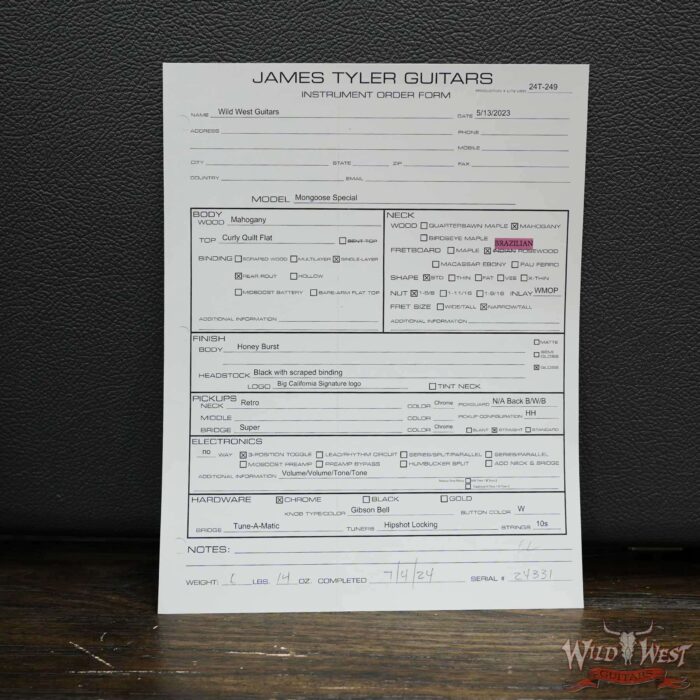 JAMES TYLER GUITARS
INSTRUMENT ORDER FORM
24T-249
NAME Wild West Guitars DATE 5/13/2023
ADDRESS PHONE
MOBILE
CITY STATE ZIP FAX
COUNTRY EMAIL
MODEL Mongoose Special
BODY
WOOD Mahogany
TOP Curly Quilt Flat BENT TOP
BINDING SCRAPED WOOD MULTILAYER SINGLE-LAYER
REAR-ROUT HOLLOW
MIDBOOST BATTERY BARE-ARM FLAT TOP
ADDITIONAL INFORMATION
NECK
WOOD QUARTERSAWN MAPLE MAHOGANY
BIRDSEYE MAPLE BRAZILIAN
FRETBOARD MAPLE INDIAN ROSEWOOD
MACASSAR EBONY PAU FERRO
SHAPE STD THIN FAT VEE X-THIN
NUT 1-5/8 1-11/16 1-9/16 INLAY WMOP
FRET SIZE WIDE/TALL NARROW/TALL
ADDITIONAL INFORMATION
FINISH
BODY Honey Burst
MATTE
SEMI GLOSS
GLOSS
HEADSTOCK Black with scraped binding
LOGO Big California Signature logo TINT NECK
PICKUPS
NECK Retro COLOR Chrome PICKGUARD N/A Back B/W/B
MIDDLE COLOR PICKUP CONFIGURATION HH
BRIDGE Super COLOR Chrome SLANT STRAIGHT STANDARD
ELECTRONICS
no WAY 3-POSITION TOGGLE LEAD/RHYTHM CIRCUIT SERIES/SPLIT/PARALLEL SERIES/PARALLEL
MIDBOOST PREAMP PREAMP BYPASS HUMBUCKER SPLIT ADD NECK & BRIDGE
ADDITIONAL INFORMATION Volume/Volume/Tone/Tone
HARDWARE CHROME BLACK GOLD
KNOB TYPE/COLOR Gibson Bell BUTTON COLOR W
BRIDGE Tune-A-Matic TUNERS Hipshot Locking STRINGS 10s
NOTES:
WEIGHT: 6 LBS. 14 OZ. COMPLETED 7/4/24 SERIAL # 24331
WILD WEST
GUITARS